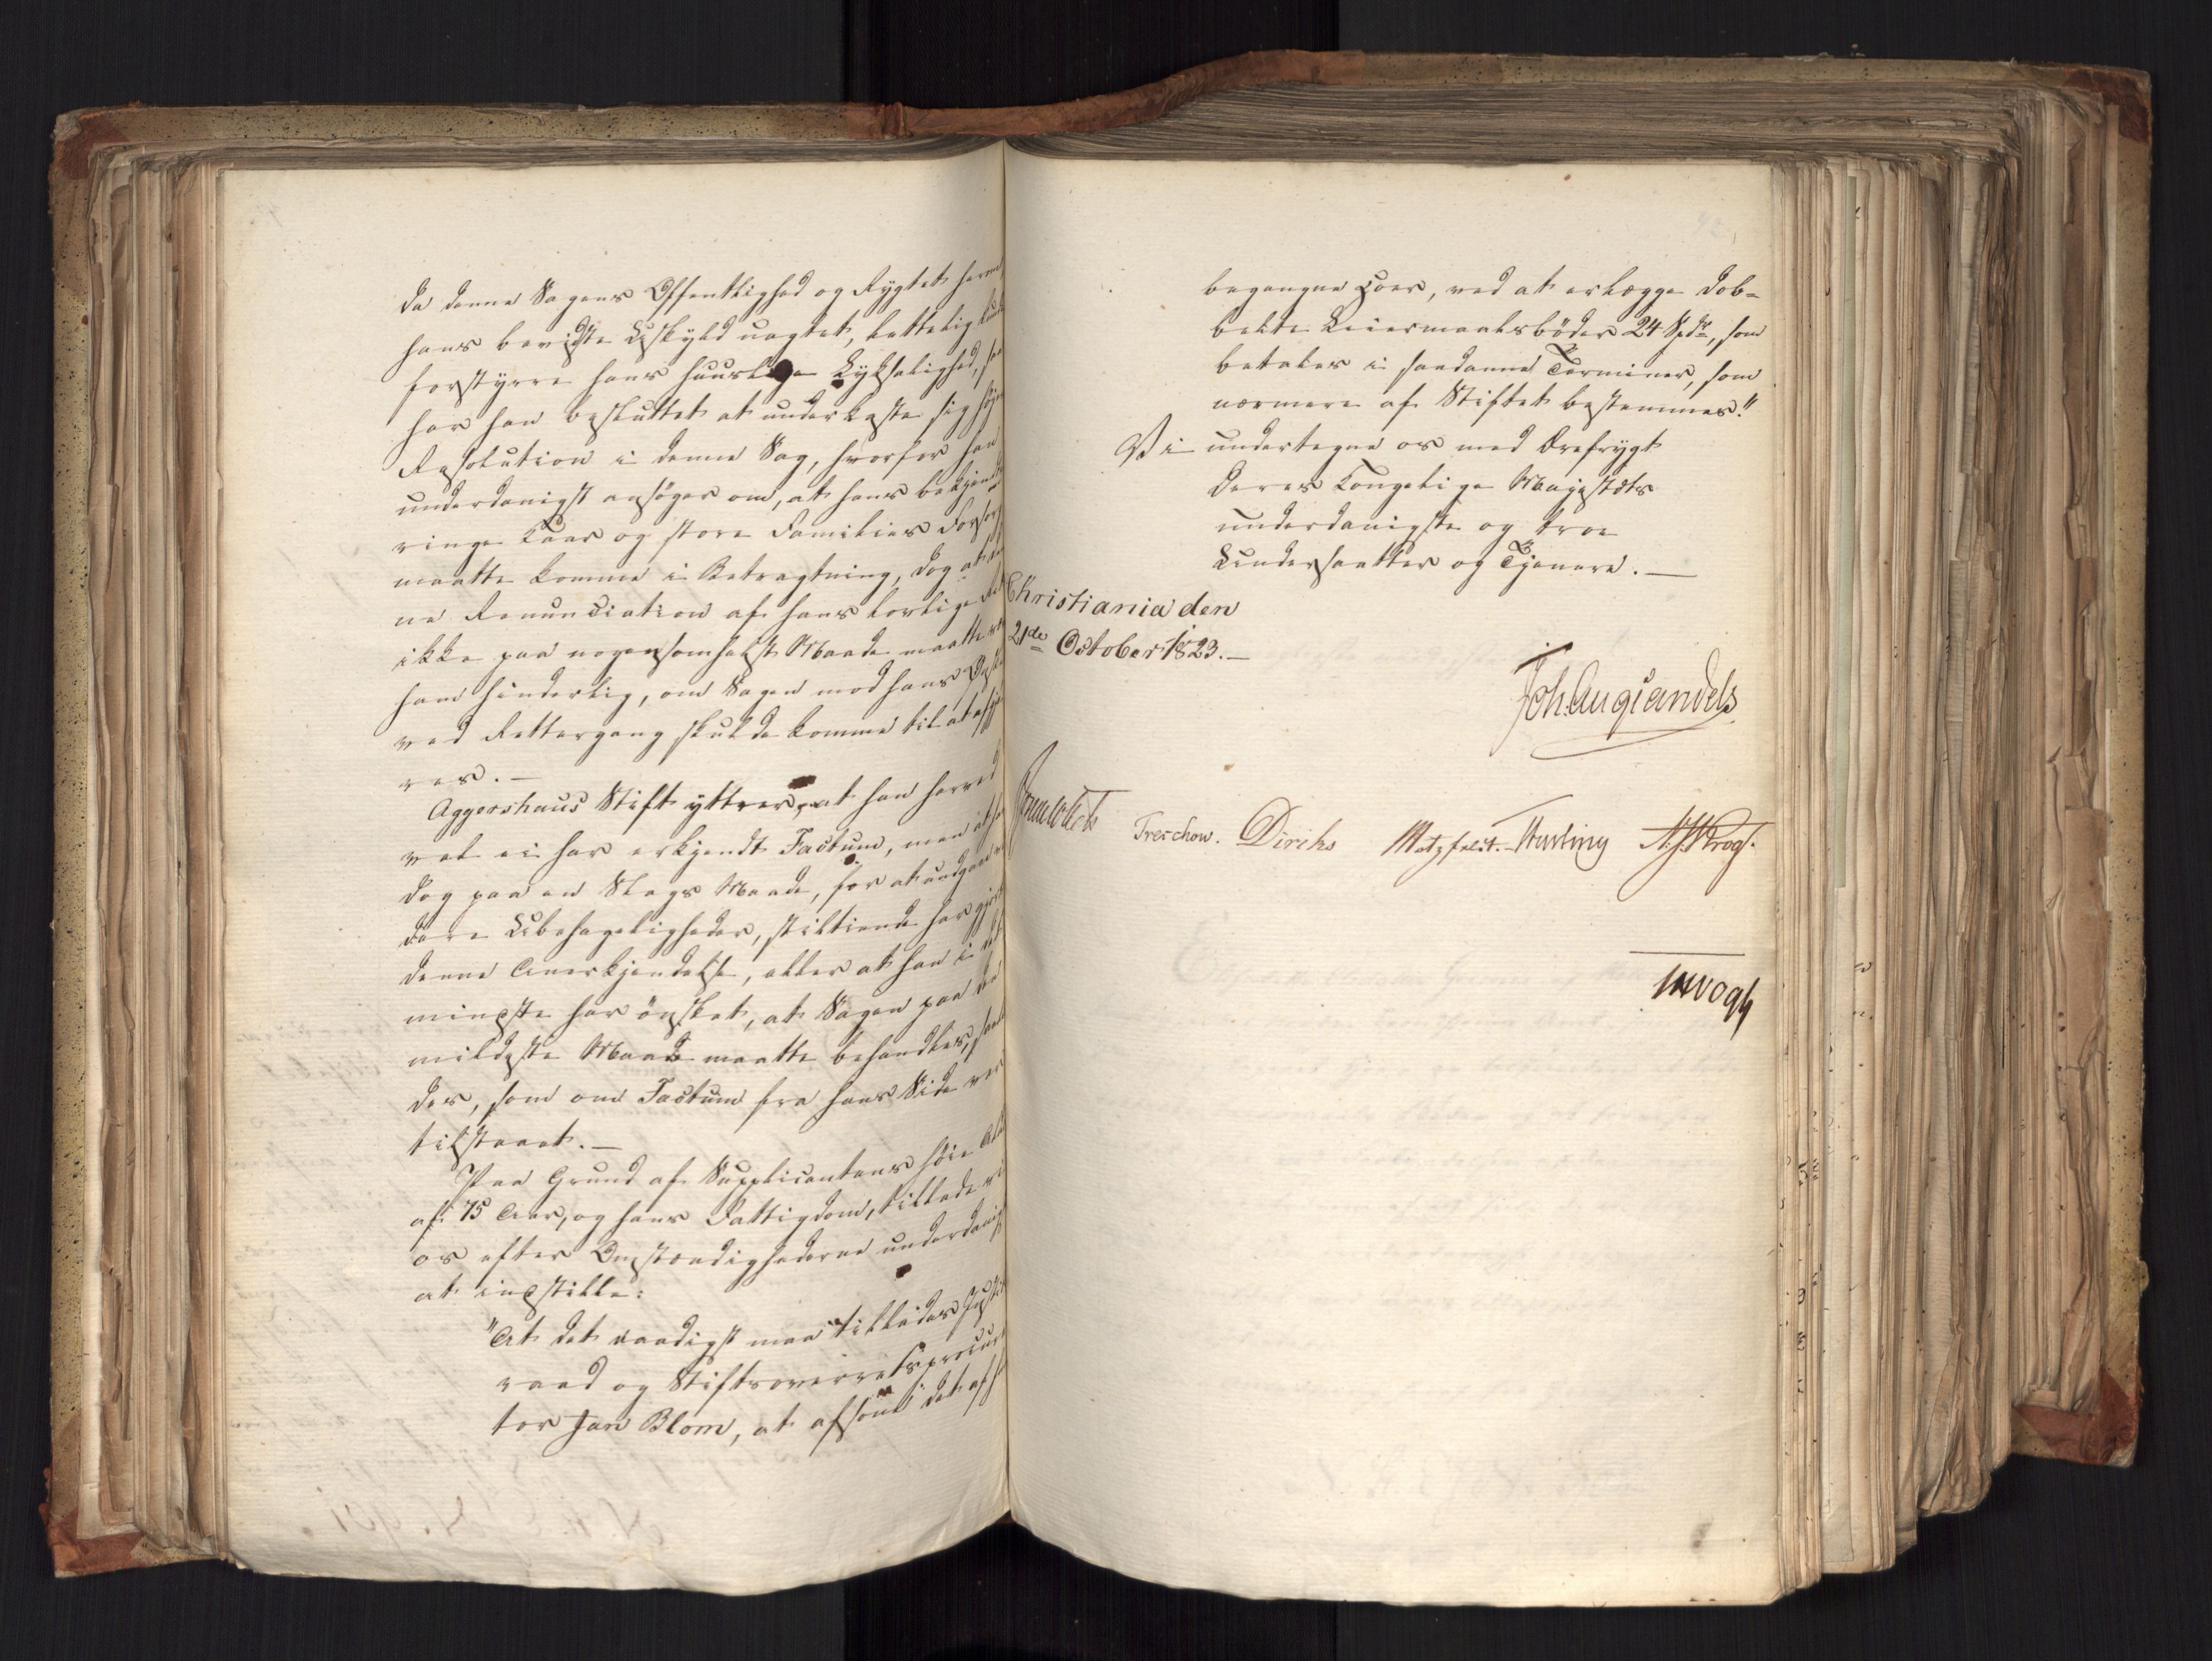 da denne Sagens Offentlighed og Rygtet herom
hans bevidste Uskyld uagtet, lettelig kunde
forstyrre hans huuslige Lyksalighed, saa
har han besluttet at underkaste sig høi
Resolution i denne Sag, hvorfor han
underdanigst ansøger om, at hans bekjendte
ringe Kaar og store Families Forsørg
maatte komme i Betragtning, dog at den
ne Renunciation af hans lovlige Ret
ikke paa nogensomhelst Maade maatte være
ham hinderlig, om Sagen mod hans
ved Rettergang skulde komme til at afgjø
res. —
Aggershuus Stift yttrer, at han herved
vel ei har erkjendt Factum, men at han
dog paa en Slags Maade, for at undgaae vi
dere Ubehageligheder, stiltiende har gjort
denne Anerkjendelse, eller at han i det
mindste har ønsket, at Sagen paa den
mildeste Maade maatte behandles, saale
des, som om Factum fra hans Side var
tilstaaet. —
Paa Grund af Supplicantens høie Alder
af 75 Aar, og hans Fattigdom, tillade vi
os efter Omstændighederne underdanigst
at indstille:
"At det naadigst maa tillades Justits
raad og Stiftsoverretsprocura
tor Jan Blom, at afsone det af ham
begangne Hoer, ved at erlægge dob=
belte Leiermaalsbøder 24 Spdr, som
betales i saadanne Terminer, som
nærmere af Stiftet bestemmes."
Vi undertegne os med Ærefrygt
Deres Kongelige Majestæts
underdanigste og troe
Undersaatter og Tjenere. —
Christiania den
21de October 1823. —
Joh. Aug Sandels
Sommerhielm Treschow. Diriks Motzfeldt. Fasting N. J. Krogh.
Vogt